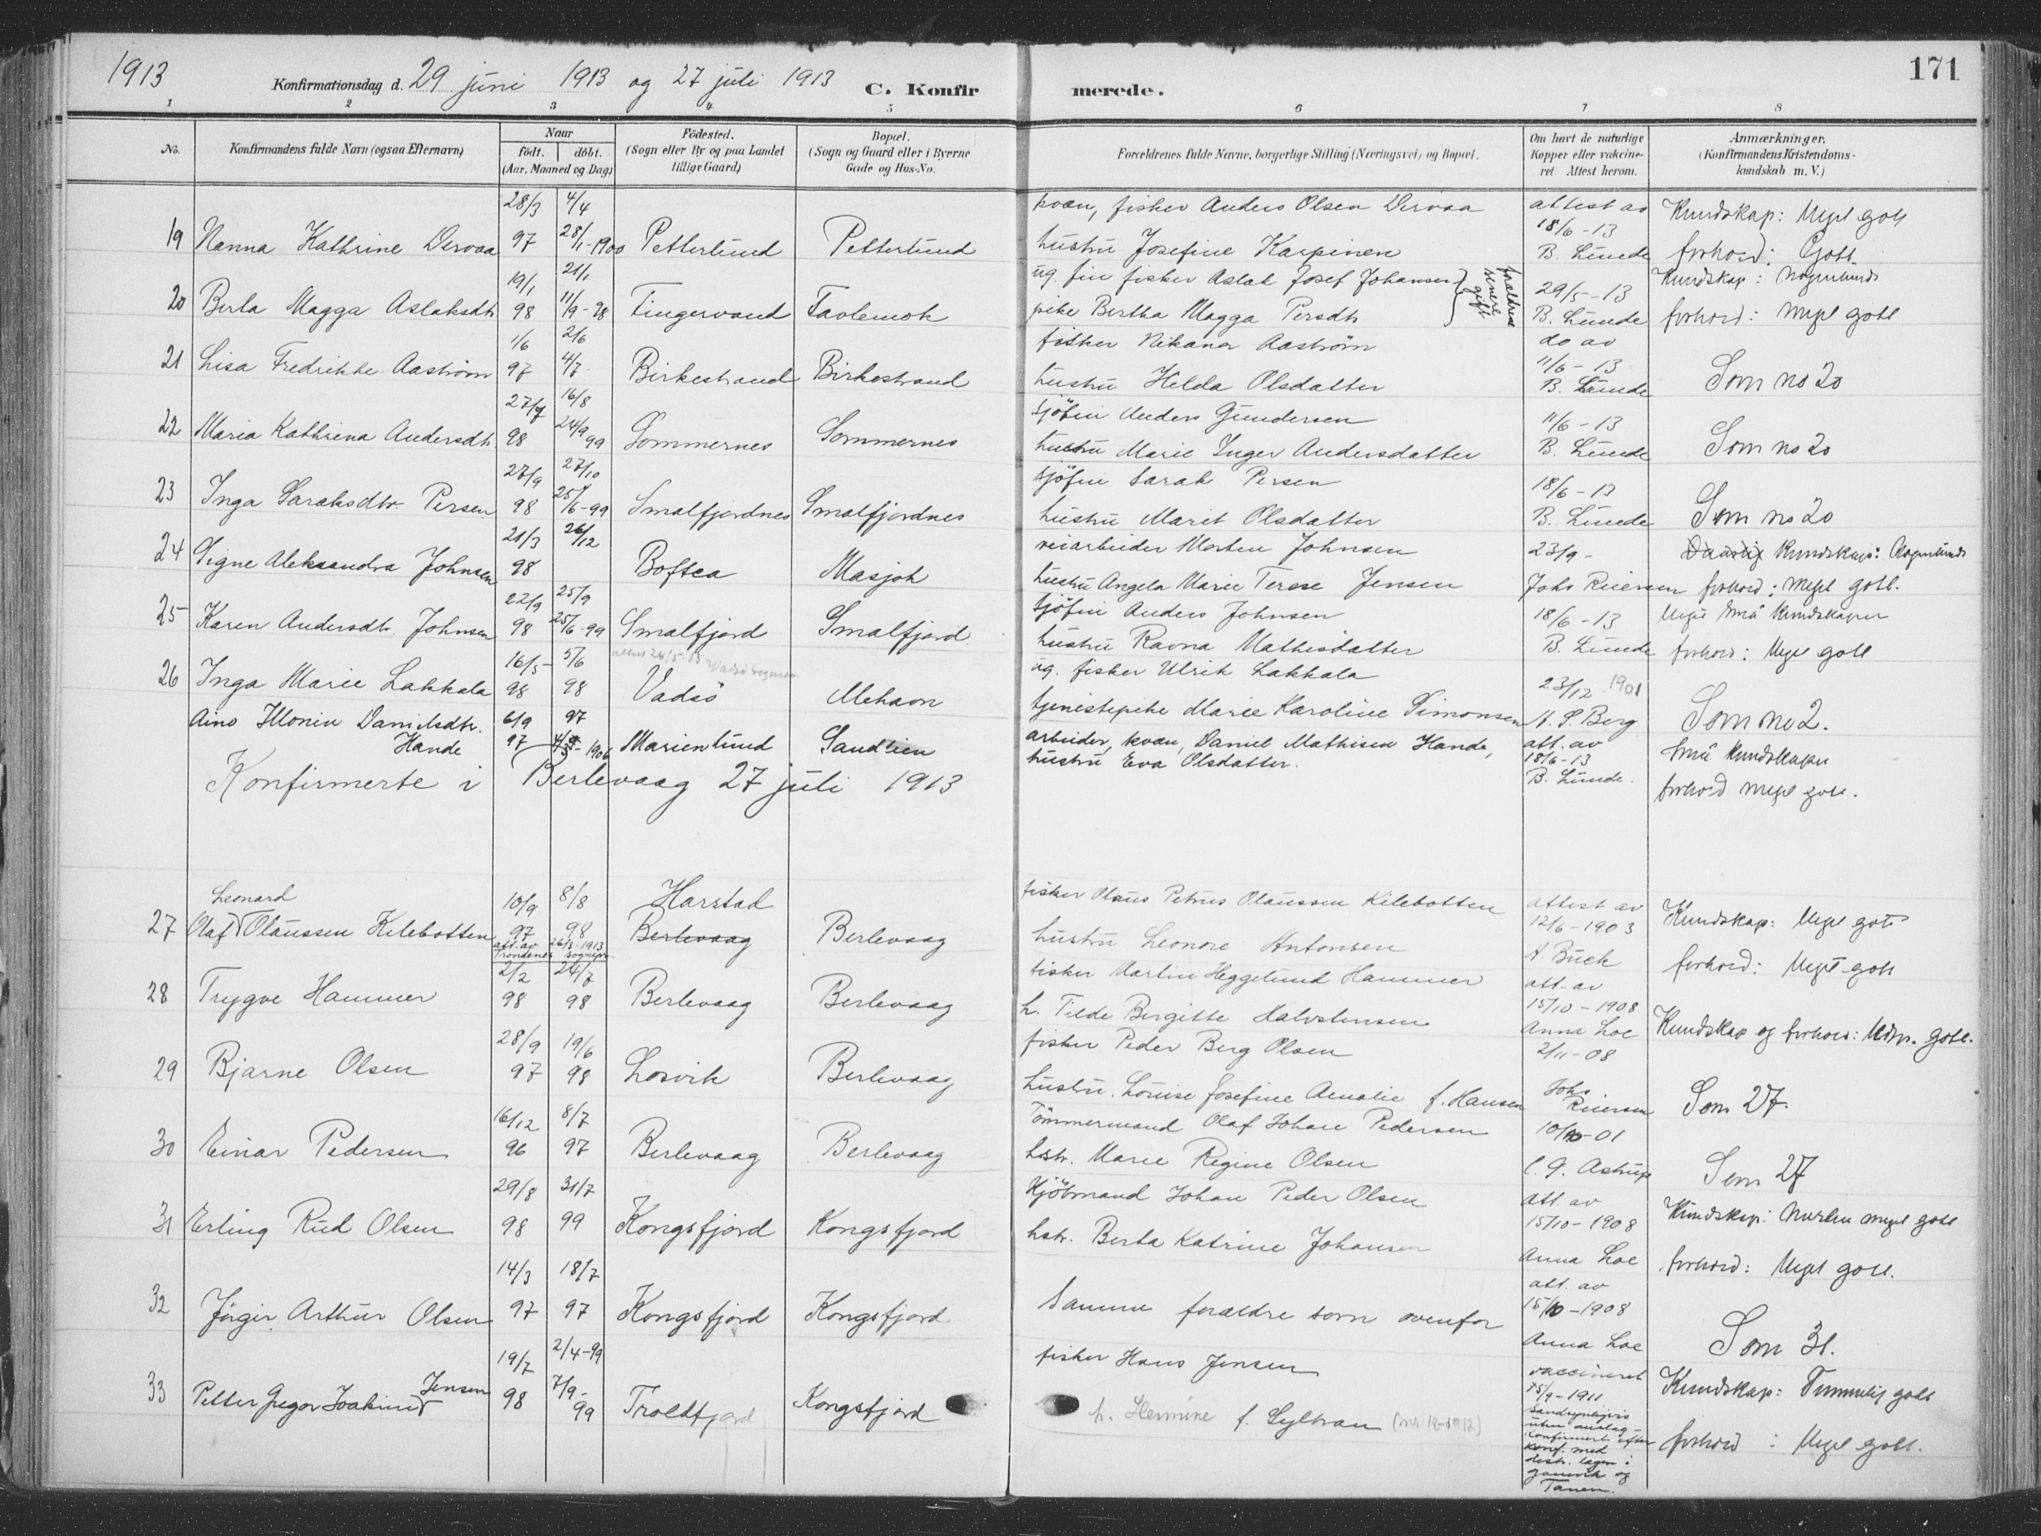 1913
Konfirmationsdag d. 29 juni 1913 og 27 juli 1913
C. Konfirmerede.
171
1 2 3 4 5 6 7 8
No.
Konfirmandens fulde Navn (ogsaa Efternavn)
Naar
født. döbt.
(Aar, Maaned og Dag)
Födested.
(Sogn eller By og paa Landet
tillige Gaard)
Bopæl.
(Sogn og Gaard eller i Byerne
Gade og Hus-No.
Forældrenes fulde Navne, borgerlige Stilling (Næringsvei) og Bopæl.
Om havt de naturlige
Kopper eller vakcine-
ret Attest herom.
Anmærkninger,
(Konfirmandens Kristendoms-
kundskab m. V.)
28/3 4/4 kvæn, fisker Anders Olsen Dervaa attest av Kundskap: Meget godt
19 Nanna Kathrine Dervaa 97 28/1-1900 Petterlund Petterlund hustru Josefine Karpinen 18/6-13 B. Lunde forhold: Godt.
19/1 21/1 ug. fin fisker Aslak Josef Johansen forældrene senere gift 29/5-13 Kundskap: Nogenlunde
20 Berta Magga Aslaksdtr. 98 11/9-98 Tingervand Favlemok pike Bertha Magga Persdtr B. Lunde forhold: Meget godt
1/6 2/6 fisker Nikanor Aaström do av
21 Lisa Fredrikke Aaström 97 4/7 Birkestrand Birkestrand hustru Hilda Olsdatter 11/6-13 B. Lunde Som no 20
27/7 16/8 sjöfin Anders Gundersen 11/6-13
22 Maria Kathrina Andersdtr. 98 24/9 99 Sommernes Sommernes hustru Marie Inger Andersdatter B. Lunde Som no 20
27/9 27/10 sjöfin Sarak Persen 18/6-13
23 Inga Saraksdtr. Persen 98 25/6-99 Smalfjordnes Smalfjordnes hustru Marit Olsdatter B. Lunde Som no 20
21/3 26/12 veiarbeider Morten Johnsen 23/9- Kundskap: Nogenlunde
24 Signe Aleksandra Johnsen 98 Boftca Masjok hustru Angela Marie Terese Jensen Johs Riersen forhold: Meget godt.
22/9 25/9 sjöfin Anders Johnsen 18/6-13 Meget små kundskaper
25 Karen Andersdtr. Johnsen 98 25/6-99 Smalfjord Smalfjord hustru Ravna Mathisdatter B. Lunde forhold: Meget godt
attest 24/5-13 Vadsö sognepr.
16/5- 5/6 ug. fisker Ulrik Lakkala 23/12 1901
26 Inga Marie Lakkala 98 98 Vadsö Mehavn tjenestepike Marie Karoline Simonsen N. S. Berg Som no 2.
Aino Illonia Danielsdtr. 6/9 97 arbeider, kvæn, Daniel Mathisen Hande, att. av Små kundskaper
Hande 97 1906 Marienlund Sandlien hustru Eva Olsdatter. 18/6-13 B. Lunde. forhold meget godt.
Konfirmerte i Berlevaag 27 juli 1913
Leonard 10/9 8/8 Harstad fisker Olaus Petrus Olaussen Kilebotten attest av Kundskap: Meget godt
27 Olaf Olaussen Kilebotten 97 98 Berlevaag Berlevaag hustru Leonore Antonsen 12/6-1903 A Buck forhold: Meget godt
att. av 26/3-1913
Trondenes sognepr.
2/2 24/7 fisker Martin Heggelund Hammer att. av
28 Trygve Hammer 98 98 Berlevaag Berlevaag h. Tilde Bergitte Halvstensen 15/10-1908 Anna Loe Kundskap og forhold: Udm. godt.
28/9 19/6 fisker Peder Berg Olsen 2/11-08
29 Bjarne Olsen 97 98 Losvik Berlevaag hustru. Louise Josefine Amalie f. Hansen Johs Riersen Som 27.
16/12 8/7 Tömmermand Olaf Johan Pedersen 10/10-01
30 Einar Pedersen 96 97 Berlevaag Berlevaag hstr. Marie Regine Olsen C. G. Astrup Som 27
29/8 31/7 Kjöbmand Johan Peder Olsen att av Kundskap: Næsten meget godt
31 Erling Rud Olsen 98 99 Kongsfjord Kongsfjord hstr. Berta Katrine Johansen 15/10-1908 Anna Loe forhold: Meget godt.
14/3 18/7 att. av
32 Jörgir Arthur Olsen 97 97 Kongsfjord Kongsfjord Samme forældre som ovenfor 15/10-1908 Anna Loe Som 31.
19/7 2/4-99 fisker Hans Jensen vaccineret Kundskap: Temmelig godt
33 Petter Gregor Joakim Jensen 98 7/9-99 Troldfjord Kongsfjord h. Hermine f. Lyltvan 15/9-1911 forhold: Meget godt.
sandsynligvis
uten anslag -
konfirmert efter
konf. med
distr. lægen i
Gamvik og
Tanen.